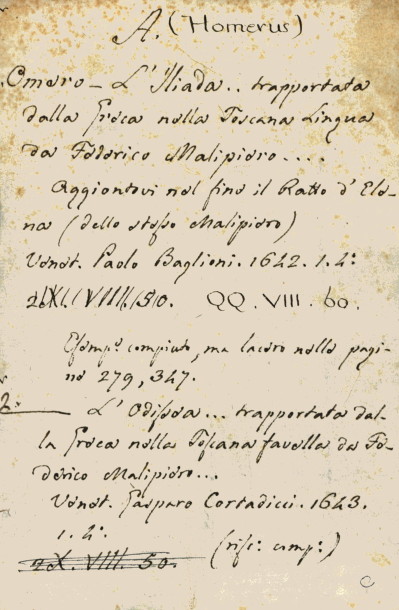 A. (Homerus)
Omero - L'Iliada.. trapportata
dalla Greca nella Toscana Lingua
da Federico Malipiero....
Aggiontovi nel fine il Ratto d'Ele-
na (dello stesso Malipiero)
Venet. Paolo Baglioni. 1642. 1. 4.º
QQ. VIII. 60.
Esemp.º compiuto, ma lacero nelle pagi-
ne 279, 347.
2. L'Odissea... trapportata dal-
la Greca nella Toscana favella da Fe-
derico Malipiero...
Venet. Gasparo Corradicci. 1643.
1. 4.º
2X. VIII. 50. (rifc: comp:)
C